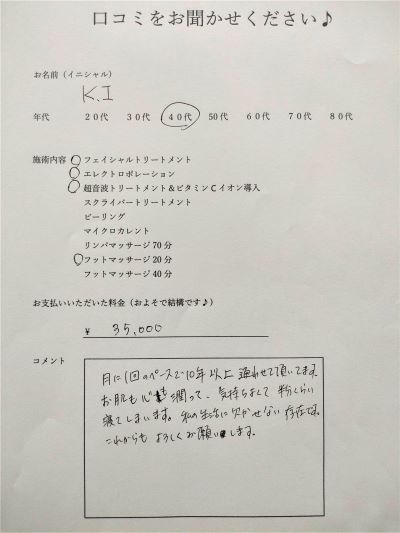 口コミをお聞かせください♪
お名前（イニシャル）
K.I
年代 20代 30代 40代 50代 60代 70代 80代
施術内容 フェイシャルトリートメント
エレクトロポレーション
超音波トリートメント＆ビタミンCイオン導入
スクライバートリートメント
ピーリング
マイクロカレント
リンパマッサージ70分
フットマッサージ20分
フットマッサージ40分
お支払いいただいた料金（およそで結構です♪）
¥ 35,000
コメント
月に1回のペースで10年以上 通わせて頂いてます。
お肌も心も潤って、気持ちよくて くらい
寝てしまいます。私の生活に欠かせない存在です。
これからも よろしくお願いします。